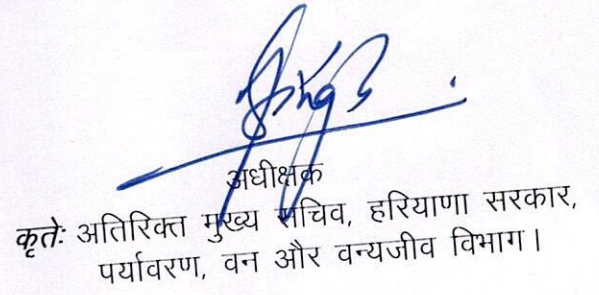 अधीक्षक
कृतेः अतिरिक्त मुख्य सचिव, हरियाणा सरकार,
पर्यावरण, वन और वन्यजीव विभाग।